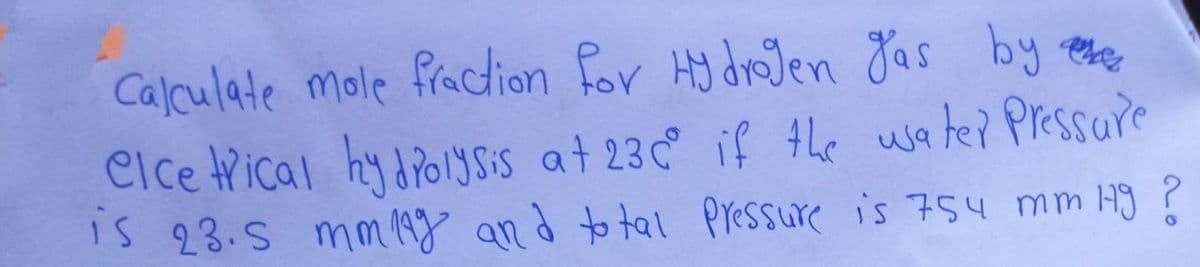 Calculate mole fraction for Hydrogen gas by
elcetrical hydrolysis at 23C° if the water Pressure
is 23.5 mmHg and total Pressure is 754 mm Hg ?